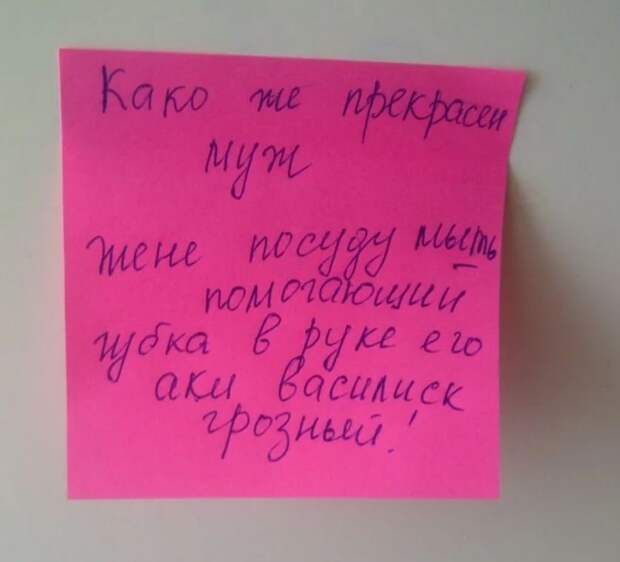 Како же прекрасен
муж
жене посуду мыть
помогающий
губка в руке его
аки василиск
грозный!